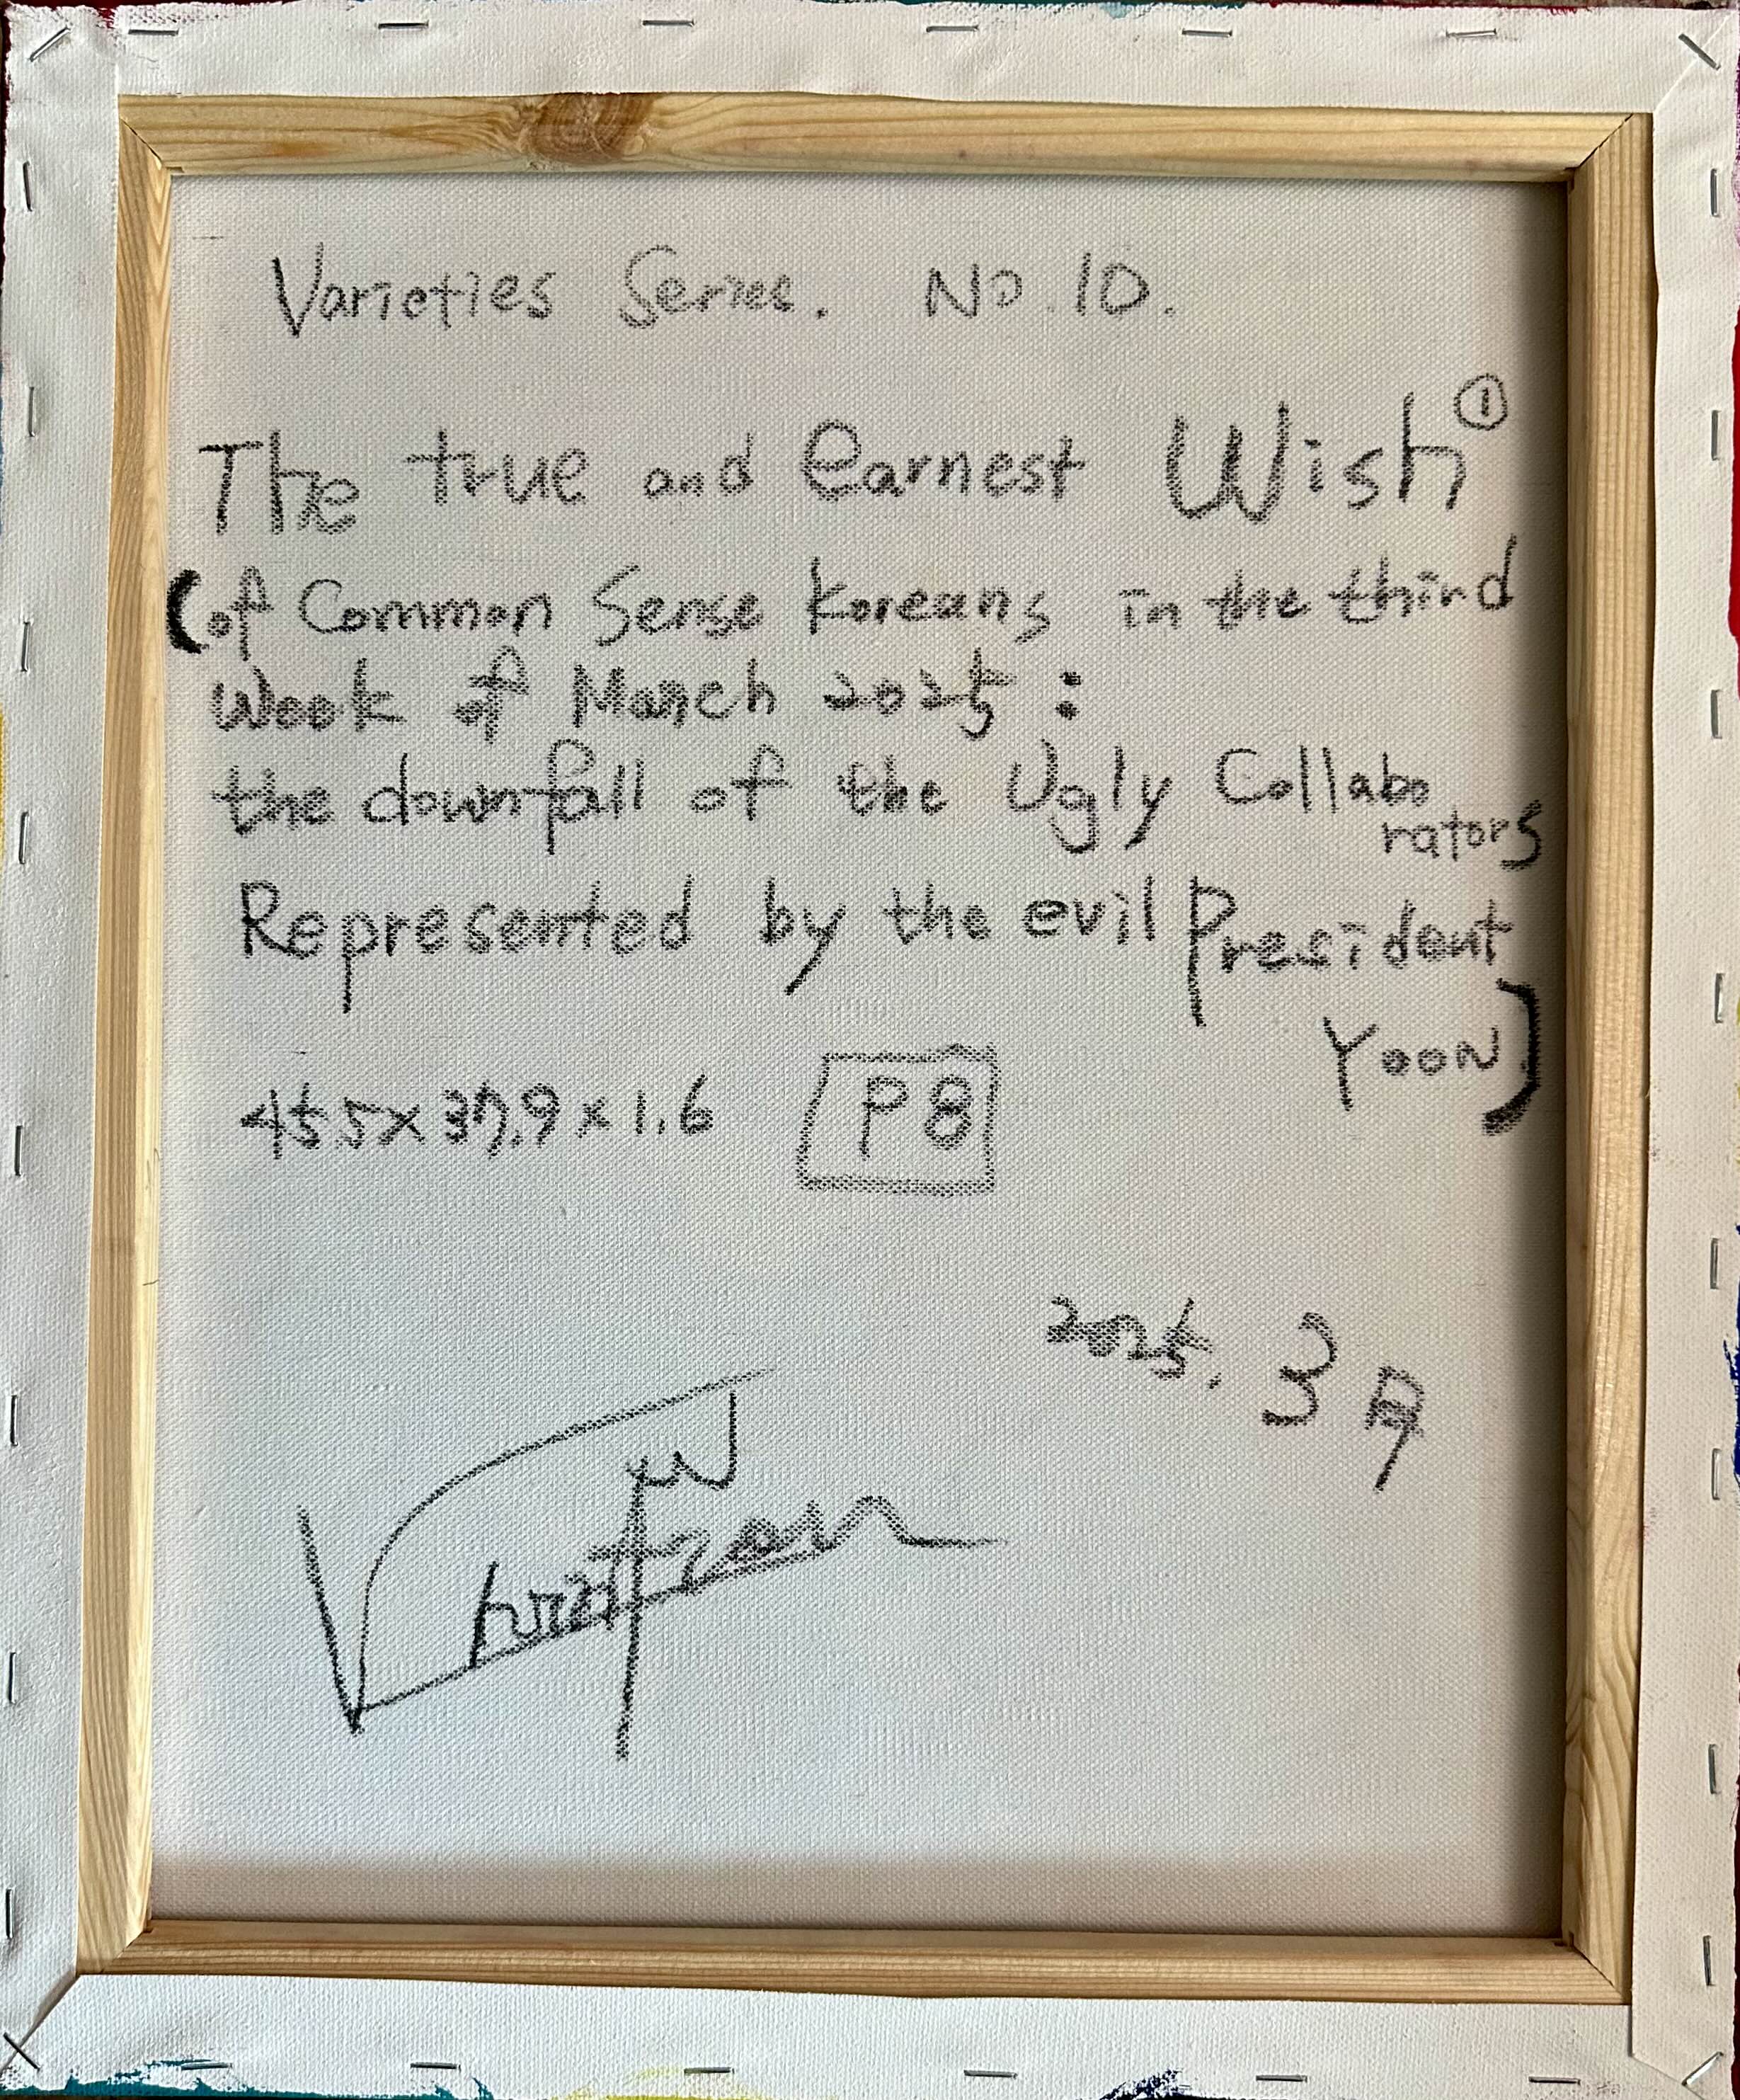 Varieties Series. No. 10.
The true and earnest Wish ①
(of Common Sense Koreans in the third
Week of March 2025 :
the downfall of the Ugly Collabo
rators
Represented by the evil President
YOON)
45.5 x 37.9 x 1.6 P8
2025. 3月